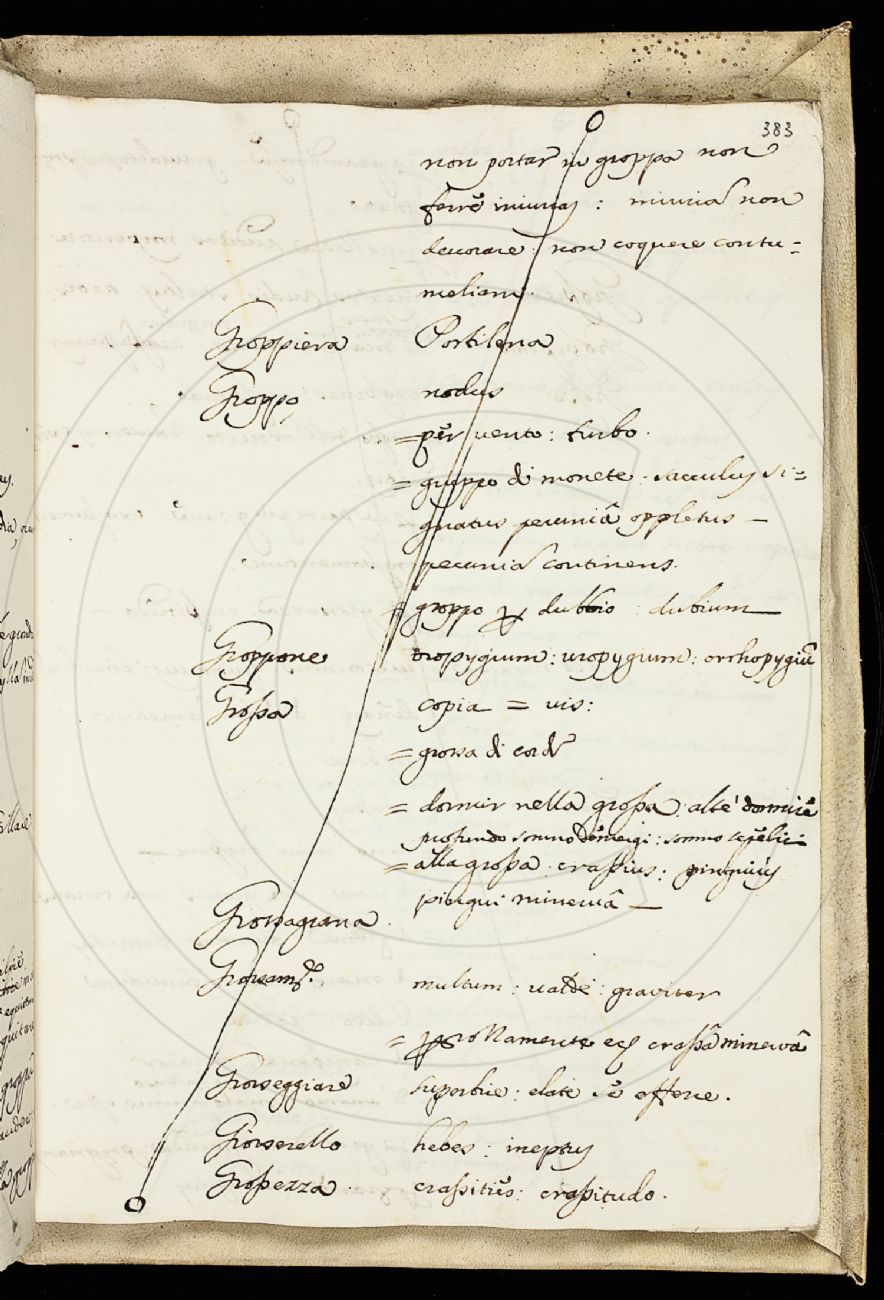 383
non portar in groppa non
ferre iniurias : iniuriã non
deuorare : non coquere contu=
meliam.
Groppiera Postilena
Groppo, nodus
= per uento : turbo.
= gruppo di monete : sacculus si=
gnatus pecuniâ oppletus —
pecuniã continens.
= groppo dubbio : dubium —
Groppone oropygium : uropygium : orthopygiũ
Grossa copia = uis :
= grossa di corde
= dormir nella grossa : altè dormire
profundo somno : somno sepeliri
= alla grossa . crassius : pinguius
pingui mineruâ —
Grossagrana .
Grossam.te multum : ualde : grauiter
= crassâ mineruâ
Grosseggiare superbire : elate se efferre .
Grosserello hebes : ineptus
Grossezza . crassities : crassitudo .